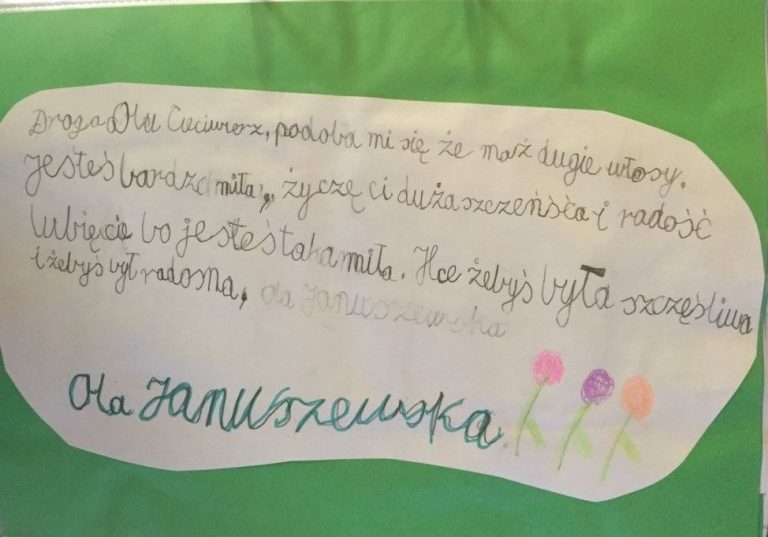 Droga Olu Ciećwierz, podoba mi się że maż dugie włosy.
jesteś bardzo miła, życzę ci duża szczeńśća i radość
lubię cie bo jesteś taka miła. Hce żebyś była szczęśliwa
i żebyś był radosna, ola Januszewska
Ola Januszewska